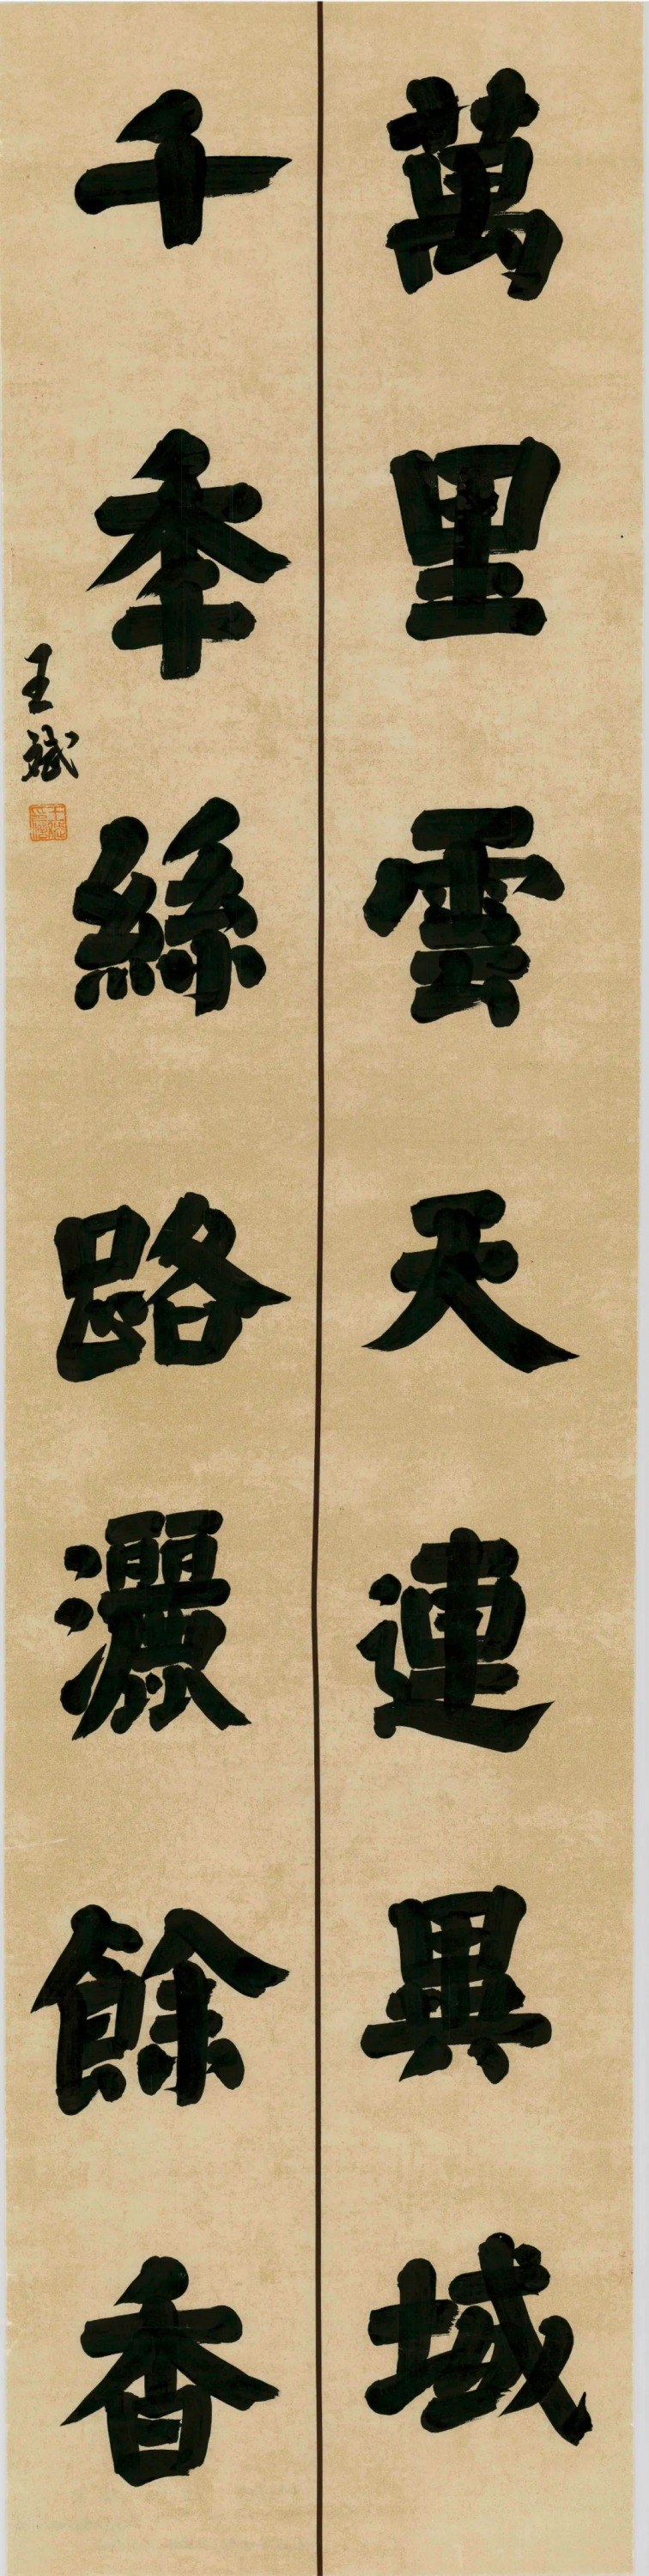 萬里雲天連異域
千秊絲路灑餘香
王斌